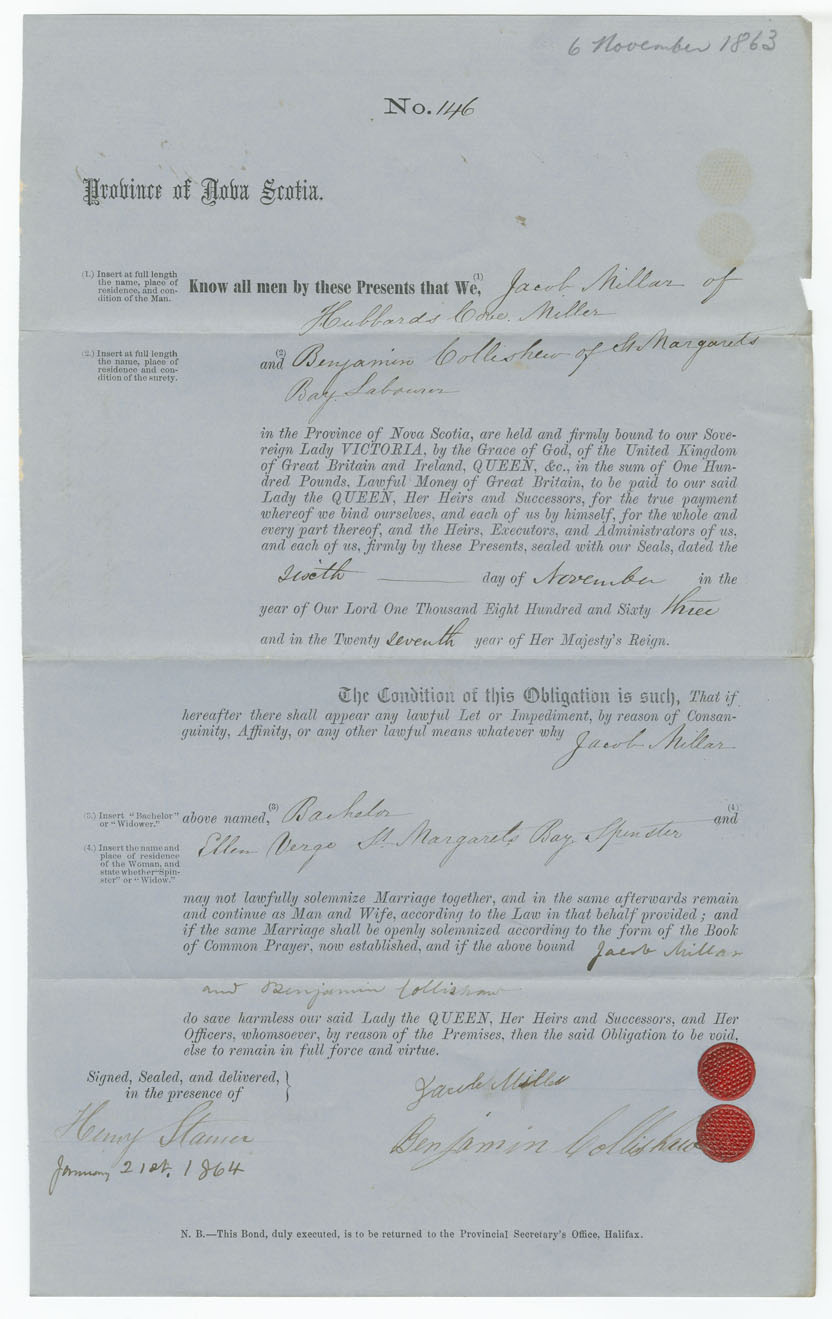 6 November 1863
No. 146
Province of Nova Scotia.
(1.) Insert at full length
the name, place of
residence, and con-
dition of the Man.
Know all men by these Presents that We, (1) Jacob Millar of
Hubbards Cove. Miller
(2.) Insert at full length
the name, place of
residence and con-
dition of the surety.
and (2) Benjamin Collishaw of St Margarets
Bay Labourer
in the Province of Nova Scotia, are held and firmly bound to our Sove-
reign Lady VICTORIA, by the Grace of God, of the United Kingdom
of Great Britain and Ireland, QUEEN, &c., in the sum of One Hun-
dred Pounds, Lawful Money of Great Britain, to be paid to our said
Lady the QUEEN, Her Heirs and Successors, for the true payment
whereof we bind ourselves, and each of us by himself, for the whole and
every part thereof, and the Heirs, Executors, and Administrators of us,
and each of us, firmly by these Presents, sealed with our Seals, dated the
sixth day of November in the
year of Our Lord One Thousand Eight Hundred and Sixty three
and in the Twenty seventh year of Her Majesty's Reign.
The Condition of this Obligation is such, That if
hereafter there shall appear any lawful Let or Impediment, by reason of Consan-
guinity, Affinity, or any other lawful means whatever why Jacob Millar
(3.) Insert "Bachelor"
or "Widower."
above named, (3) Bachelor and (4)
(4.) Insert the name and
place of residence
of the Woman, and
state whether "Spin-
ster" or "Widow."
Ellen Verge St. Margarets Bay Spinster
may not lawfully solemnize Marriage together, and in the same afterwards remain
and continue as Man and Wife, according to the Law in that behalf provided; and
if the same Marriage shall be openly solemnized according to the form of the Book
of Common Prayer, now established, and if the above bound Jacob Millar
and Benjamin Collishaw
do save harmless our said Lady the QUEEN, Her Heirs and Successors, and Her
Officers, whomsoever, by reason of the Premises, then the said Obligation to be void,
else to remain in full force and virtue.
Signed, Sealed, and delivered,
in the presence of
Jacob Miller
Henry Stamer
Benjamin Collishaw
January 21st, 1864
N. B.—This Bond, duly executed, is to be returned to the Provincial Secretary's Office, Halifax.